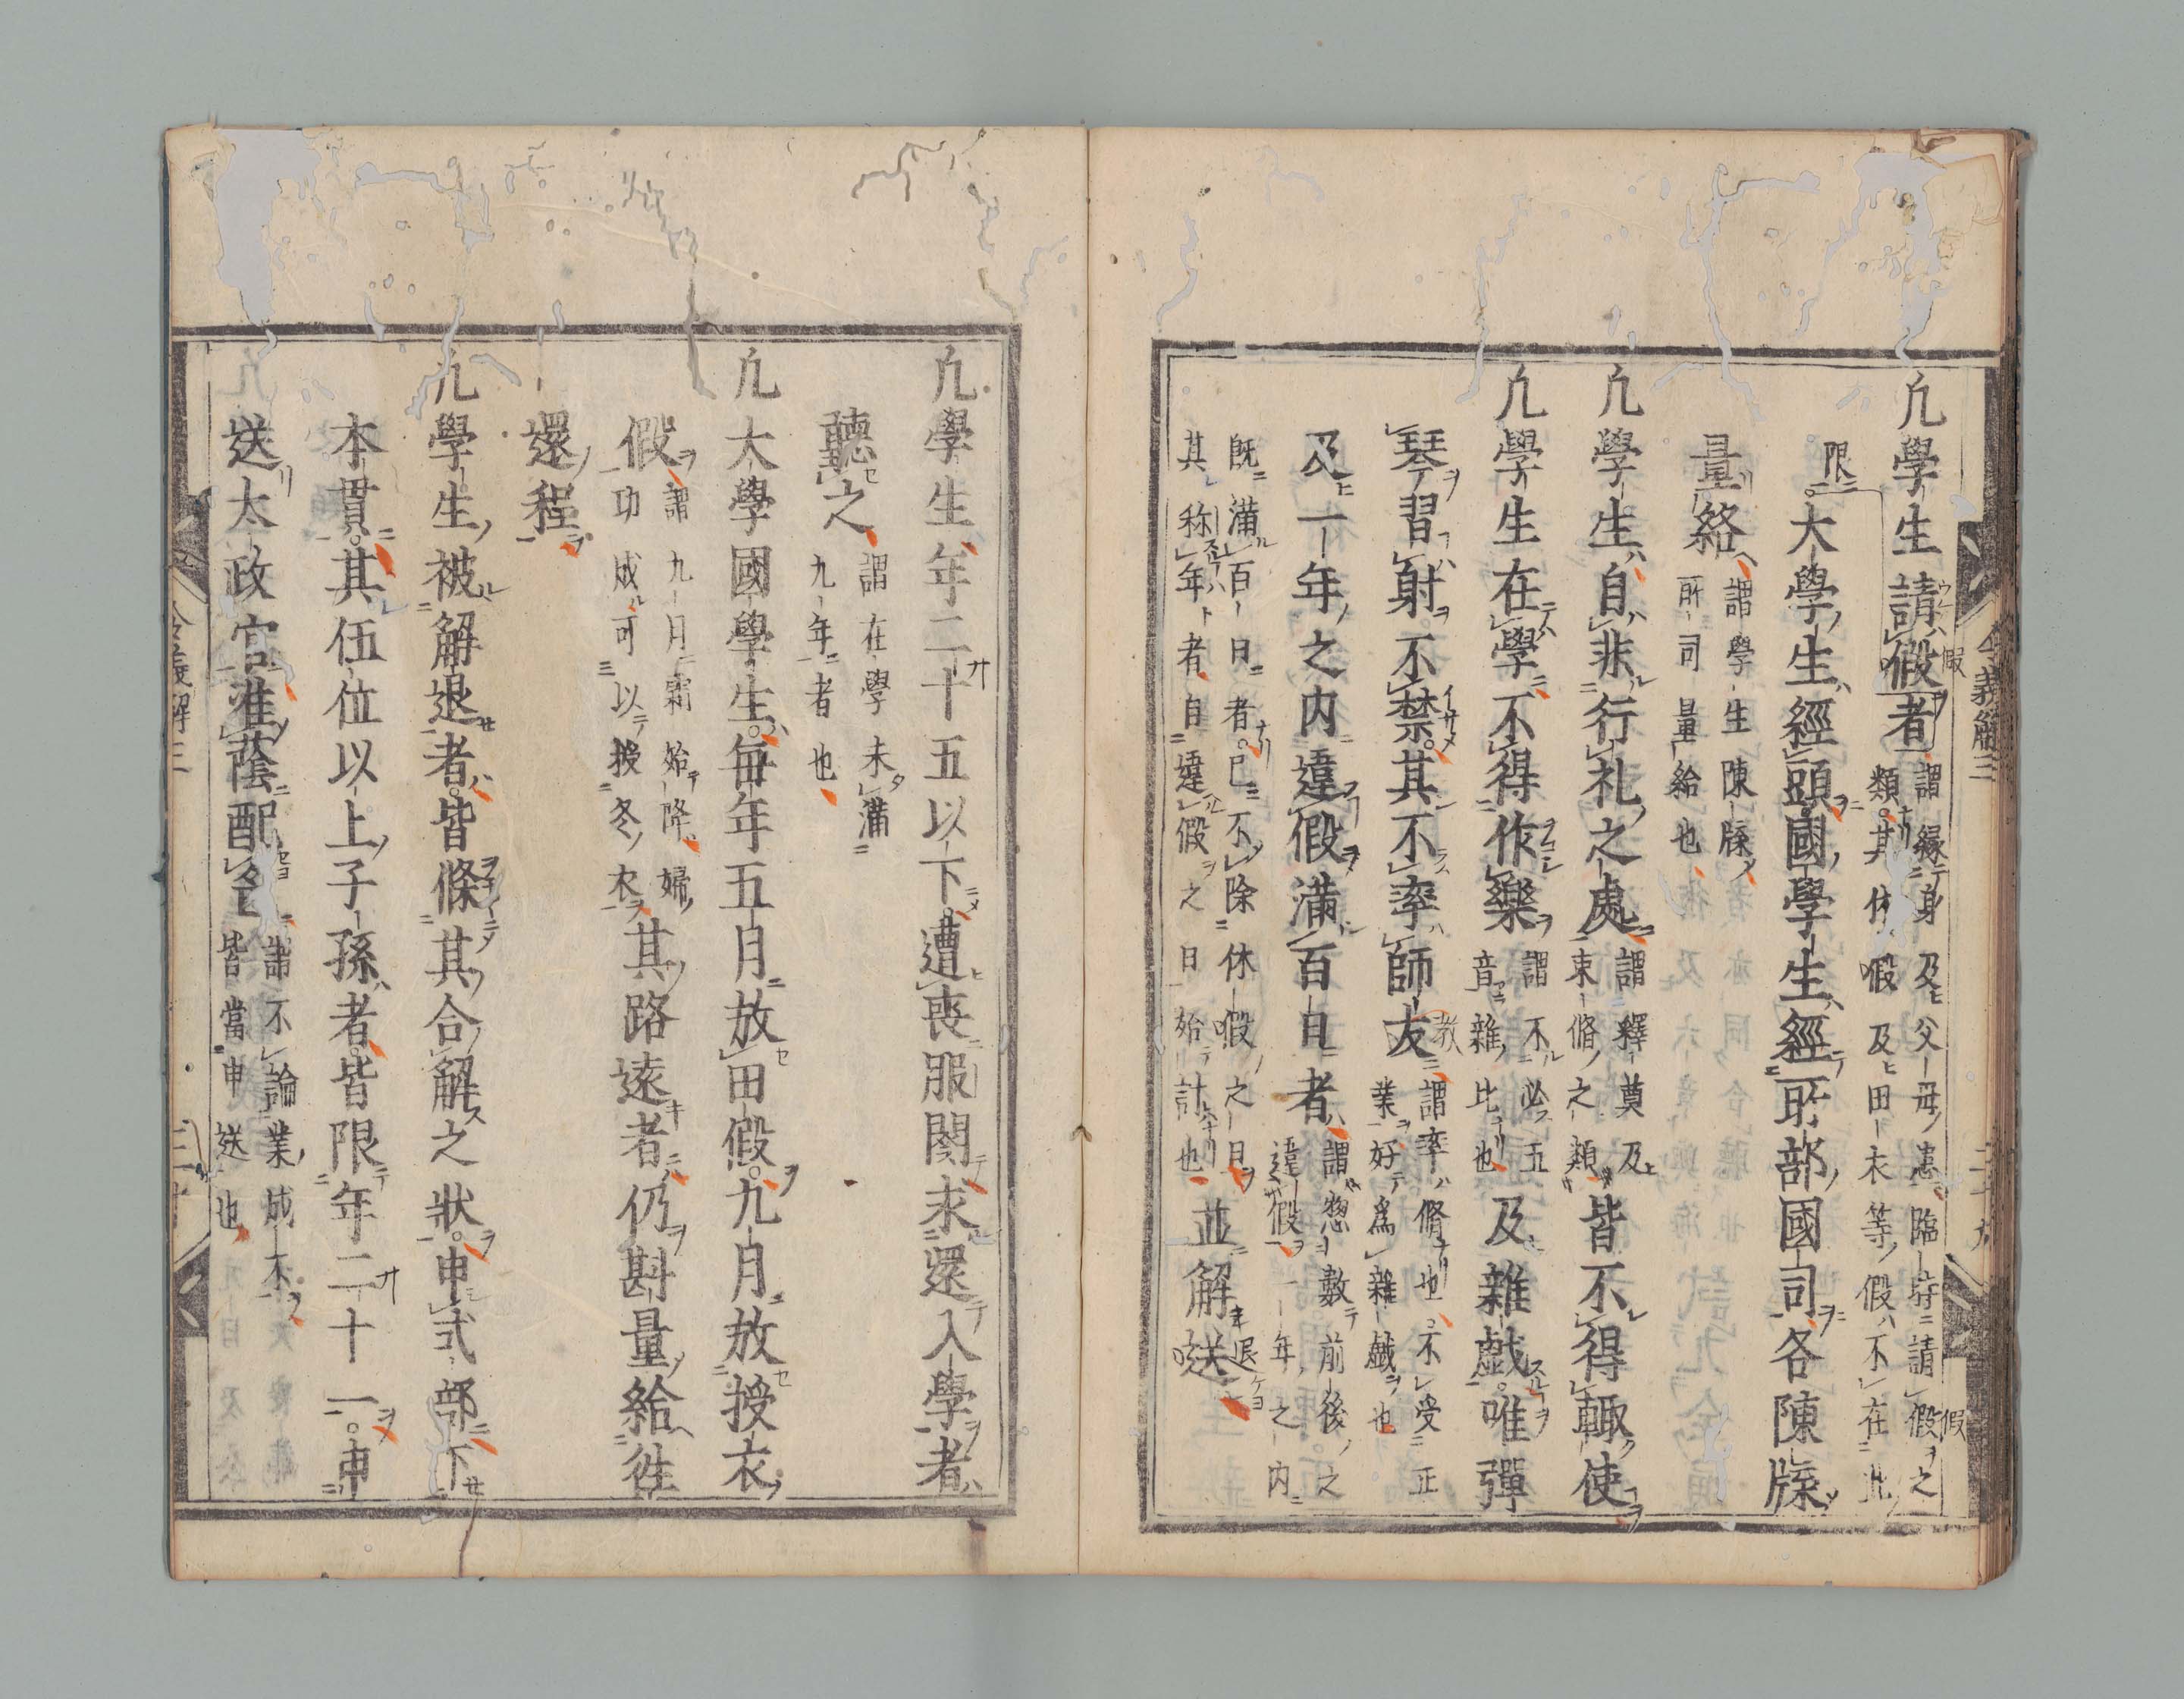 凢學生請假者謂縁身及父母患臨時請假之
類其休假及田衣等假不在此
限大學生經頭國學生經所部國司各陳牒
量給謂學生陳牒
所司量給也
凢學生自非行礼之處謂釋奠及
束脩之類皆不得輙使
凢學生在學不得作樂謂不必五
音雜比也及雜戯唯彈
琴習射不禁其不率師友謂率脩也不受正
業好爲雜戯也
及一年之内違假滿百日者謂惣數前後之
違假一年之内
既滿百日者已不除休假之日
其称年者自違假之日始計也並解送
令義解三
二十九
凢學生年二十五以下遭喪服闋求還入學者
聽之謂在學未滿
九年者也
凢大學國學生毎年五月放田假九月放授衣
假謂九月霜始降婦
功成可以授冬衣其路遠者仍斟量給徃
還程
凢學生被解退者皆條其合解之狀申式部下
本貫其伍位以上子孫者皆限年二十一申
送太政官准蔭配色謂不論業成不
皆當申送也
令義解三